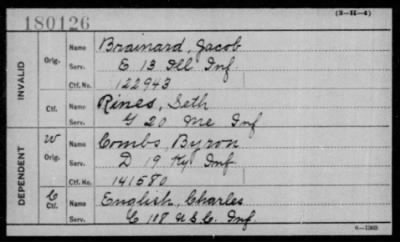 180126 (3-H-4)
INVALID Orig. Name Brainard, Jacob
Serv. E 13 Ill Inf
Ctf. No. 122943
Ctf. Name Rines, Seth
Serv. G 20 Me Inf
DEPENDENT W Orig. Name Combs, Byron
Serv. D 19 Ky Inf
Ctf. No. 141580
C Ctf. Name English, Charles
Serv. C 108 U.S.C. Inf.